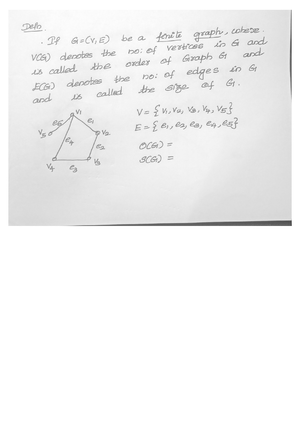 Defn
. If G=(V,E) be a finite graph, where
V(G) denotes the no: of vertices in G and
is called the order of Graph G and
E(G) denotes the no: of edges in G
and is called the size of G.
V1
e5 e1
V5 V2
e4 e2
V4 e3 V3
V = {V1, V2, V3, V4, V5}
E = {e1, e2, e3, e4, e5}
O(G) =
S(G) =